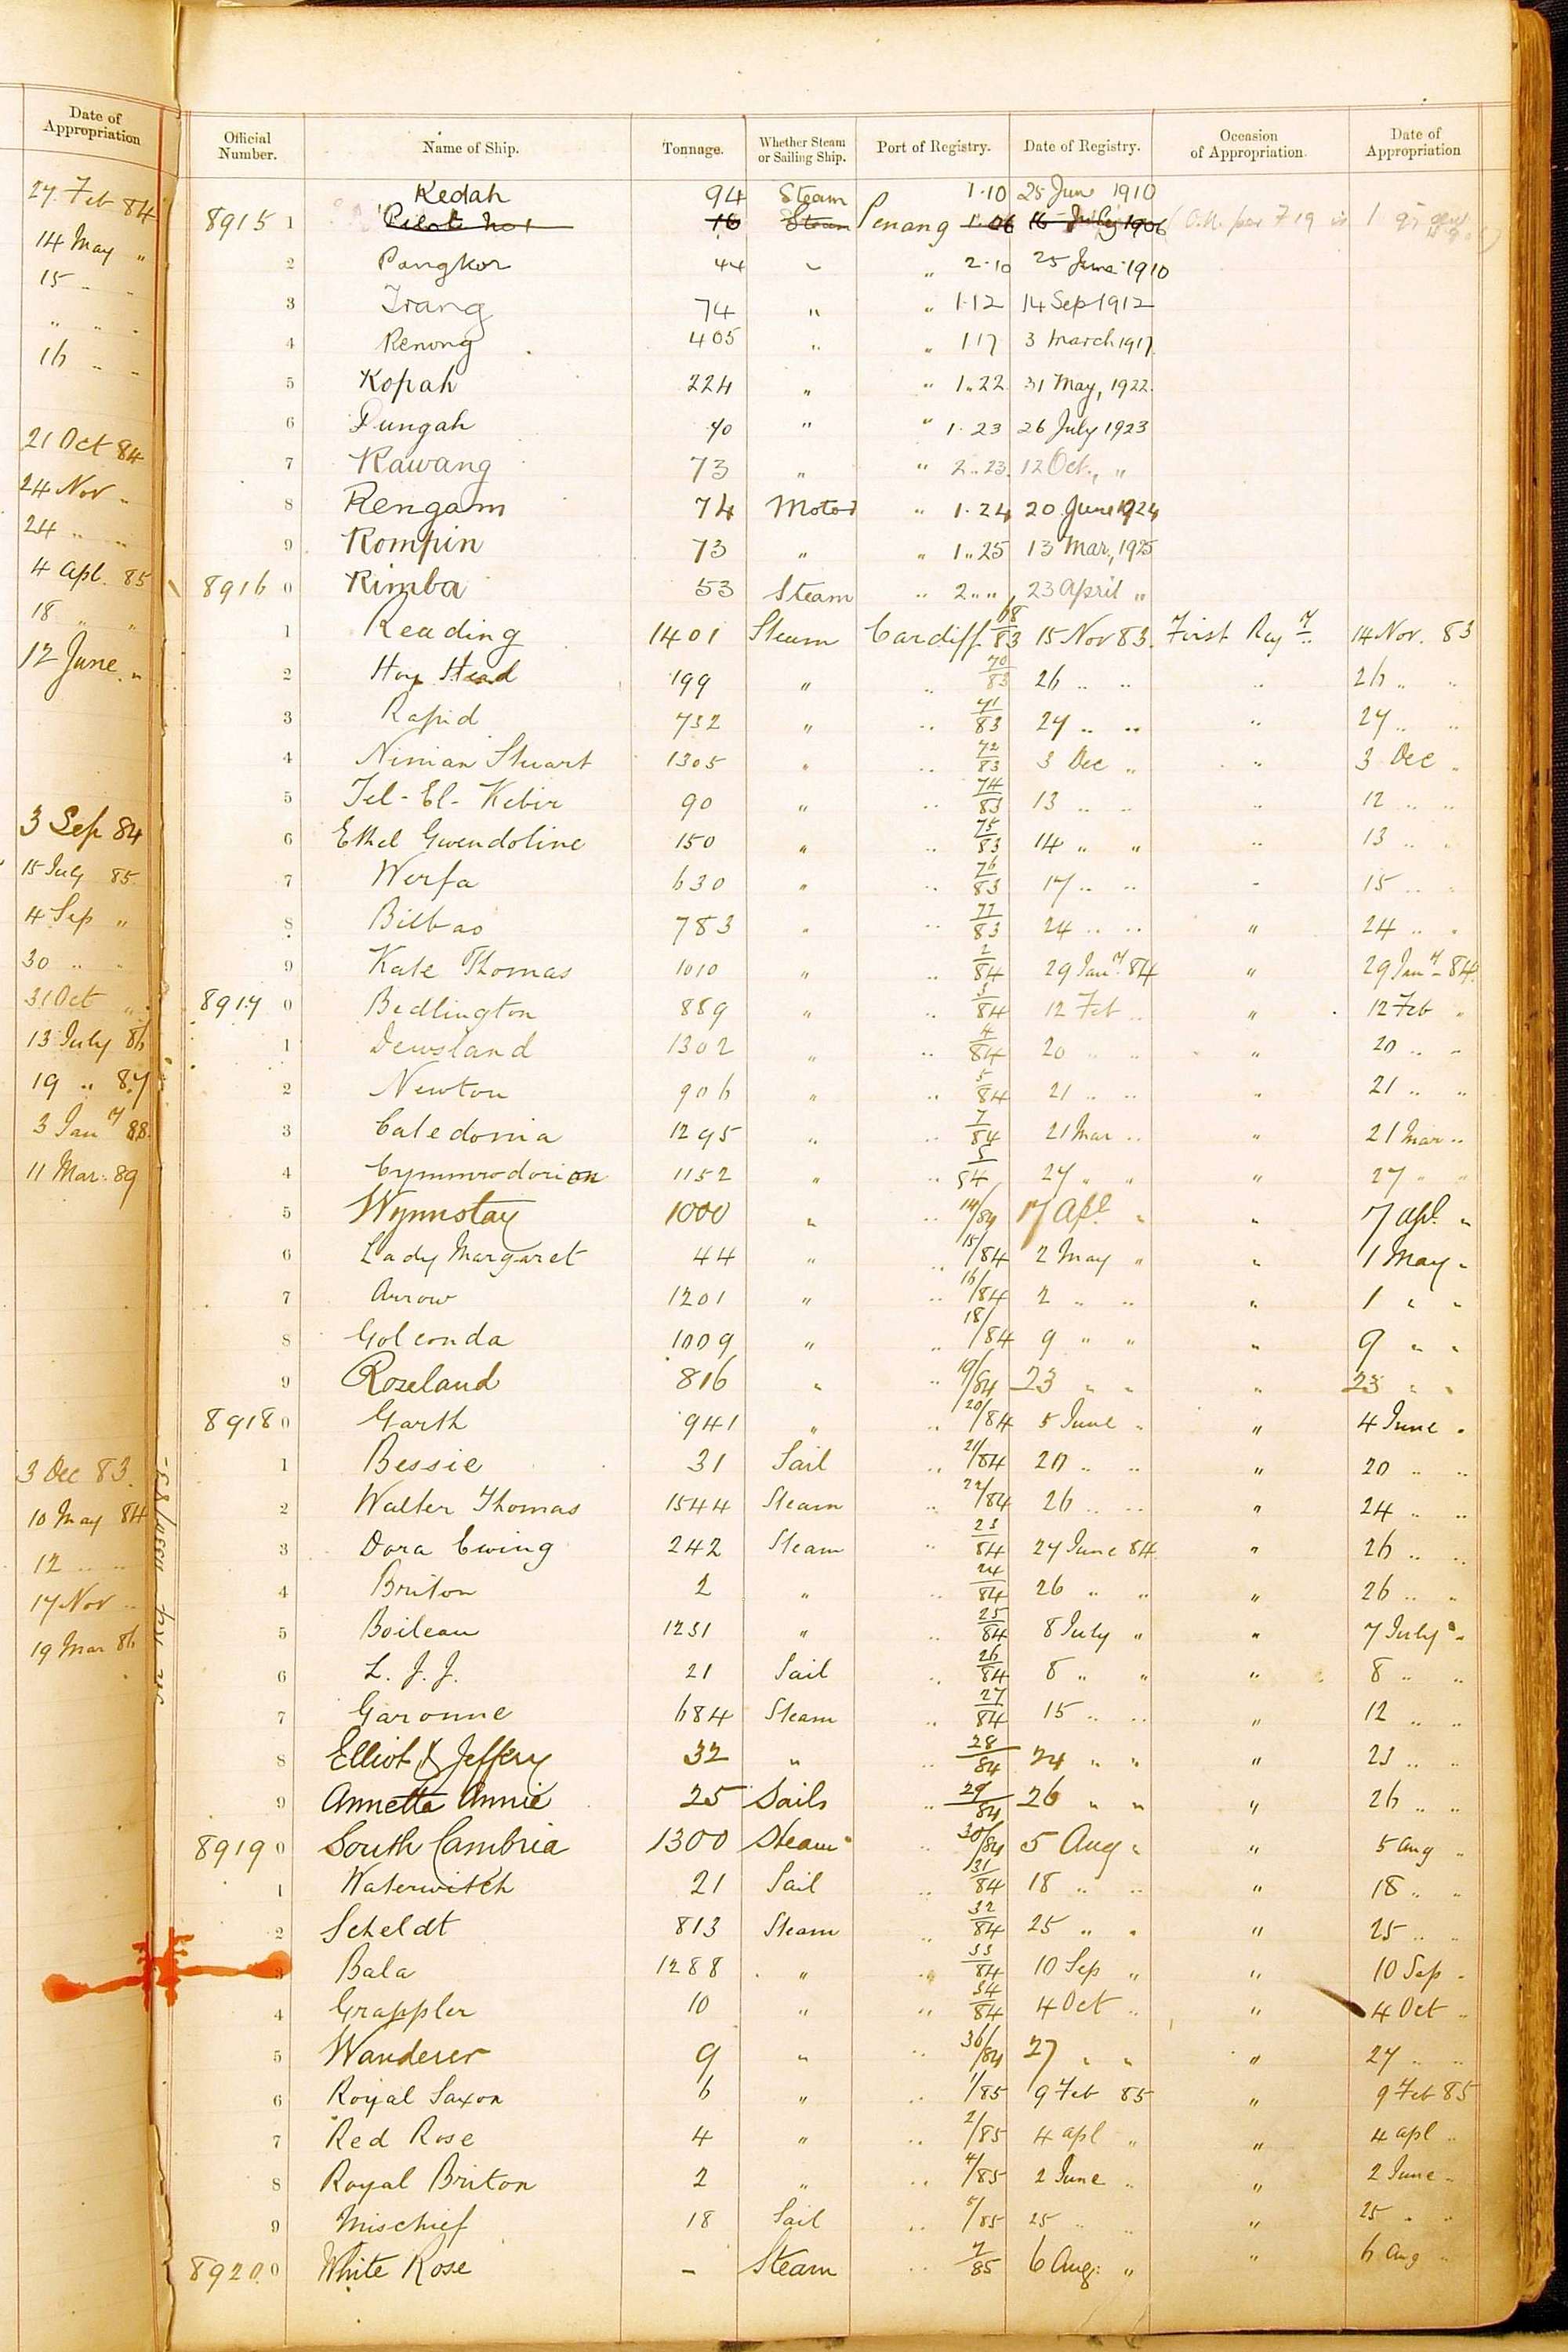 Date of Appropriation
27 Feb 84
14 May "
15 " "
" " "
16 " "
21 Oct 84
24 Nov "
24 " "
4 Apl. 85
18 " "
12 June "
3 Sep 84
15 July 85
4 Sep "
30 " "
31 Oct "
13 July 86
19 " 87
3 Jany 88
11 Mar. 89
3 Dec 83
10 May 84
12 " "
17 Nov "
19 Mar 86
Official Number. Name of Ship. Tonnage. Whether Steam or Sailing Ship. Port of Registry. Date of Registry. Occasion of Appropriation. Date of Appropriation
Kedah 94 Steam 1.10 25 Jun 1910
8915 1 Pilot No 1 16 Steam Penang 1.06 16 July 1906
2 Pangkor 44 " " 2.10 25 June 1910
3 Trang 74 " " 1.12 14 Sep 1912
4 Renong 405 " " 1.17 3 March 1917
5 Kopah 224 " " 1..22 31 May, 1922
6 Pungah 70 " " 1.23 26 July 1923
7 Rawang 73 " " 2..23. 12 Oct., "
8 Rengam 74 Motor " 1.24 20 June 1924
9 Rompin 73 " " 1..25 13 Mar., 1925
8916 0 Rimba 53 Steam " 2.. " 23 April "
1 Reading 1401 Steam Cardiff 68/83 15 Nov 83. First Regy 14 Nov. 83
2 Hoy Head 199 " " 70/83 26 " " " 26 " "
3 Rapid 732 " " 71/83 27 " " " 27 " "
4 Ninian Stuart 1305 " " 72/83 3 Dec " " 3 Dec "
5 Tel-El-Kebir 90 " " 74/83 13 " " " 12 " "
6 Ethel Gwendoline 150 " " 75/83 14 " " " 13 " "
7 Werfa 630 " " 76/83 17 " " " 15 " "
8 Bilbao 783 " " 77/83 24 " " " 24 " "
9 Kate Thomas 1010 " " 2/84 29 Jany 84 " 29 Jany 84
8917 0 Bedlington 889 " " 3/84 12 Feb " " 12 Feb "
1 Dewsland 1302 " " 4/84 20 " " " 20 " "
2 Newton 906 " " 5/84 21 " " " 21 " "
3 Caledonia 1295 " " 7/84 21 Mar " " 21 Mar "
4 Cymmrodorion 1152 " " 27 " " " 27 " "
5 Wynnstay 1000 " " 14/84 17 Apl " " 7 Apl "
6 Lady Margaret 44 " " 15/84 2 May " " 1 May "
7 Arrow 1201 " " 16/84 2 " " " 1 " "
8 Golconda 1009 " " 18/84 9 " " " 9 " "
9 Roseland 816 " " 19/84 23 " " " 23 " "
8918 0 Garth 941 " " 20/84 5 June " " 4 June "
1 Bessie 31 Sail " 21/84 20 " " " 20 " "
2 Walter Thomas 1544 Steam " 22/84 26 " " " 24 " "
3 Dora Ewing 242 Steam " 23/84 27 June 84 " 26 " "
4 Briton 2 " " 24/84 26 " " " 26 " "
5 Boileau 1231 " " 25/84 8 July " " 7 July "
6 L. J. J. 21 Sail " 26/84 8 " " " 8 " "
7 Garonne 684 Steam " 27/84 15 " " " 12 " "
8 Elliot & Jeffery 32 " " 28/84 24 " " " 23 " "
9 Annetta Annie 25 Sails " 29/84 26 " " " 26 " "
8919 0 South Cambria 1300 Steam " 30/84 5 Aug " " 5 Aug "
1 Waterwitch 21 Sail " 31/84 18 " " " 18 " "
2 Scheldt 813 Steam " 32/84 25 " " " 25 " "
3 Bala 1288 " " 33/84 10 Sep " " 10 Sep "
4 Grappler 10 " " 34/84 4 Oct " " 4 Oct "
5 Wanderer 9 " " 36/84 27 " " " 27 " "
6 Royal Saxon 6 " " 1/85 9 Feb 85 " 9 Feb 85
7 Red Rose 4 " " 2/85 4 Apl " " 4 Apl "
8 Royal Briton 2 " " 4/85 2 June " " 2 June "
9 Mischief 18 Sail " 5/85 25 " " " 25 " "
8920 0 White Rose - Steam " 7/85 6 Aug. " " 6 Aug "